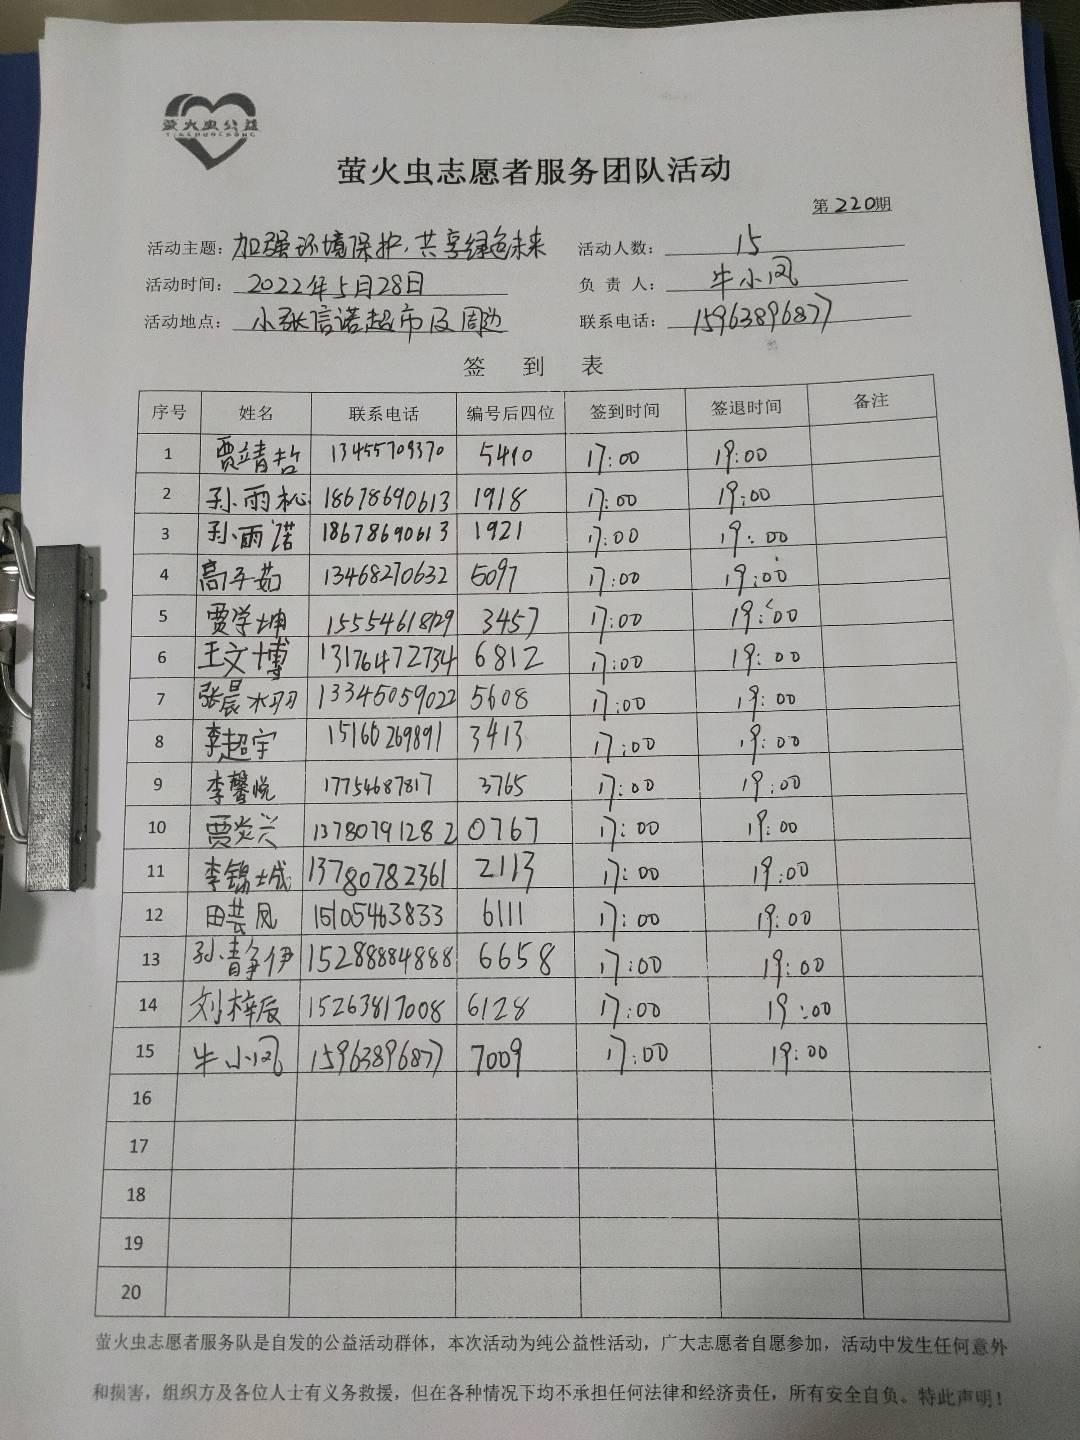 萤火虫公益
萤火虫志愿者服务团队活动
第220期
活动主题：加强环境保护，共享绿色未来 活动人数：15
活动时间：2022年5月28日 负责人：牛小凤
活动地点：小张信诺超市及周边 联系电话：15963896877
签到表
序号 姓名 联系电话 编号后四位 签到时间 签退时间 备注
1 贾靖哲 13455709370 5410 17:00 19:00
2 孙雨松 18678690613 1918 17:00 19:00
3 孙雨诺 18678690613 1921 17:00 19:00
4 高子茹 13468270632 5097 17:00 19:00
5 贾学坤 15554618129 3457 17:00 19:00
6 王文博 13176472734 6812 17:00 19:00
7 张晨 13345059022 5608 17:00 19:00
8 李超宇 15160269891 3413 17:00 19:00
9 李馨悦 17754687817 3765 17:00 19:00
10 贾炎兴 13780791282 0767 17:00 19:00
11 李锦城 13780782361 2113 17:00 19:00
12 田芸凤 15105463833 6111 17:00 19:00
13 孙静伊 15288884888 6658 17:00 19:00
14 刘梓辰 15263817008 6128 17:00 19:00
15 牛小凤 15963896877 7009 17:00 19:00
16
17
18
19
20
萤火虫志愿者服务队是自发的公益活动群体，本次活动为纯公益性活动，广大志愿者自愿参加，活动中发生任何意外
和损害，组织方及各位人士有义务救援，但在各种情况下均不承担任何法律和经济责任，所有安全自负。特此声明！